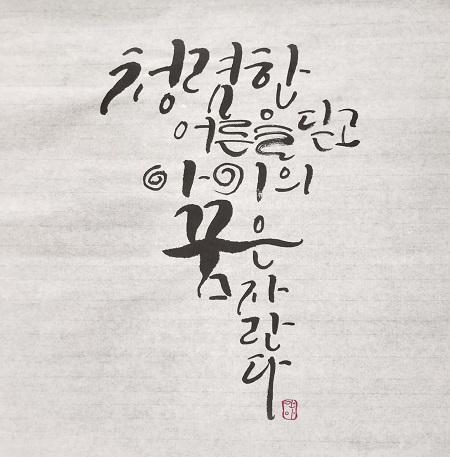 청렴한
어른을 닮고
아이의
꿈은
자란다